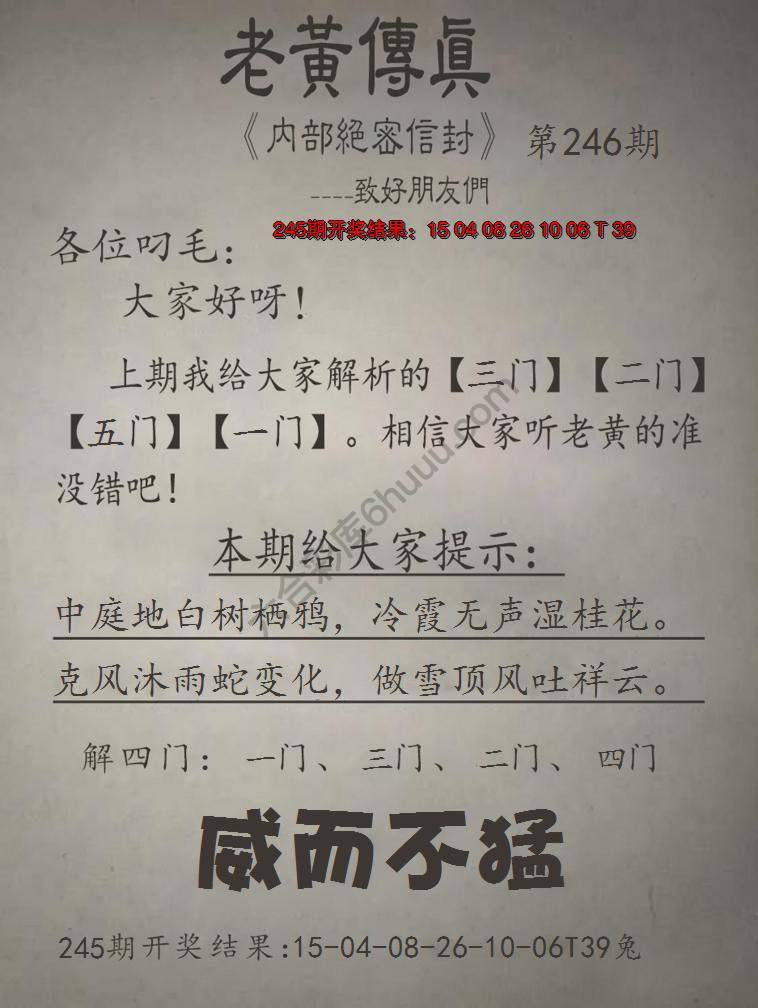 老黃傳眞
《内部絕密信封》 第246期
----致好朋友們
245期开奖结果：15 04 08 26 10 06 T 39
各位叼毛：
大家好呀！
上期我给大家解析的【三门】【二门】
【五门】【一门】。相信大家听老黄的准
没错吧！
本期给大家提示：
中庭地白树栖鸦，冷霞无声湿桂花。
克风沐雨蛇变化，做雪顶风吐祥云。
解四门：一门、三门、二门、四门
威而不猛
245期开奖结果:15-04-08-26-10-06T39兔
六合彩库6huuu.com